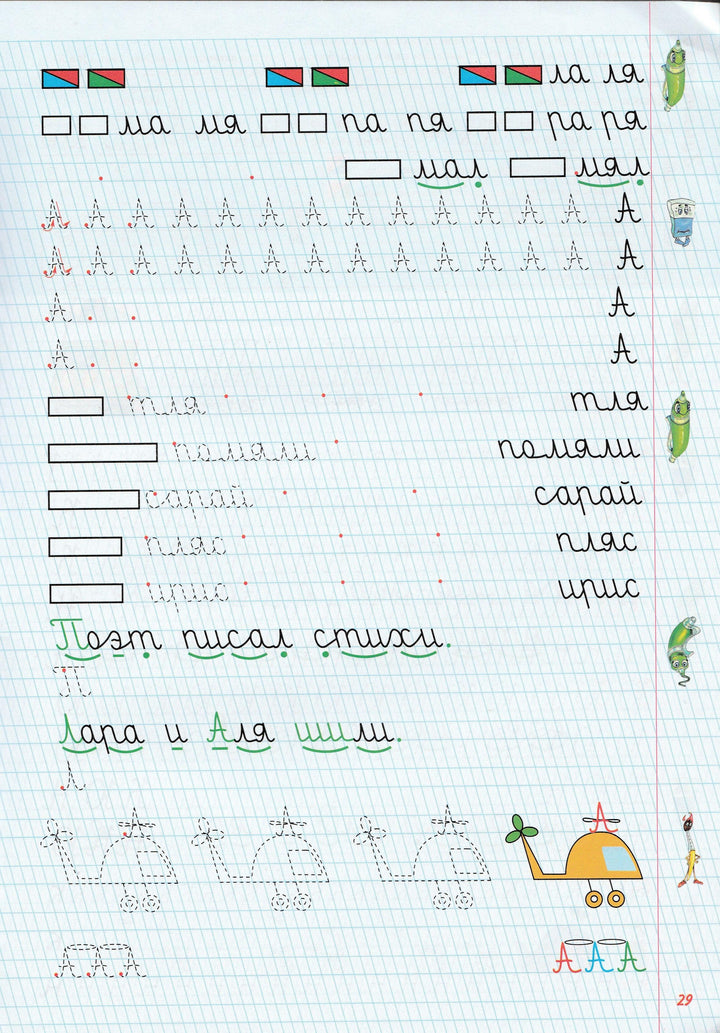 ла ля
ма мя па пя ра ря
мал мял
А А А А А А А А А А А А А А
А А А А А А А А А А А А А А
А А
А А
тля тля
помяли помяли
сарай сарай
пляс пляс
ирис ирис
Поэт писал стихи.
П
Лара и Аля шили.
Л
А А А А
ААА ААА
29